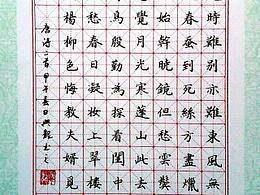 時難別亦難東風無
春蠶到死絲方盡蠟
始幹曉鏡但愁雲鬢
覺月光寒蓬山此去
鳥殷勤為探看閨中
愁春日凝妝上翠樓
楊柳色悔教夫婿覓
唐詩二首甲午